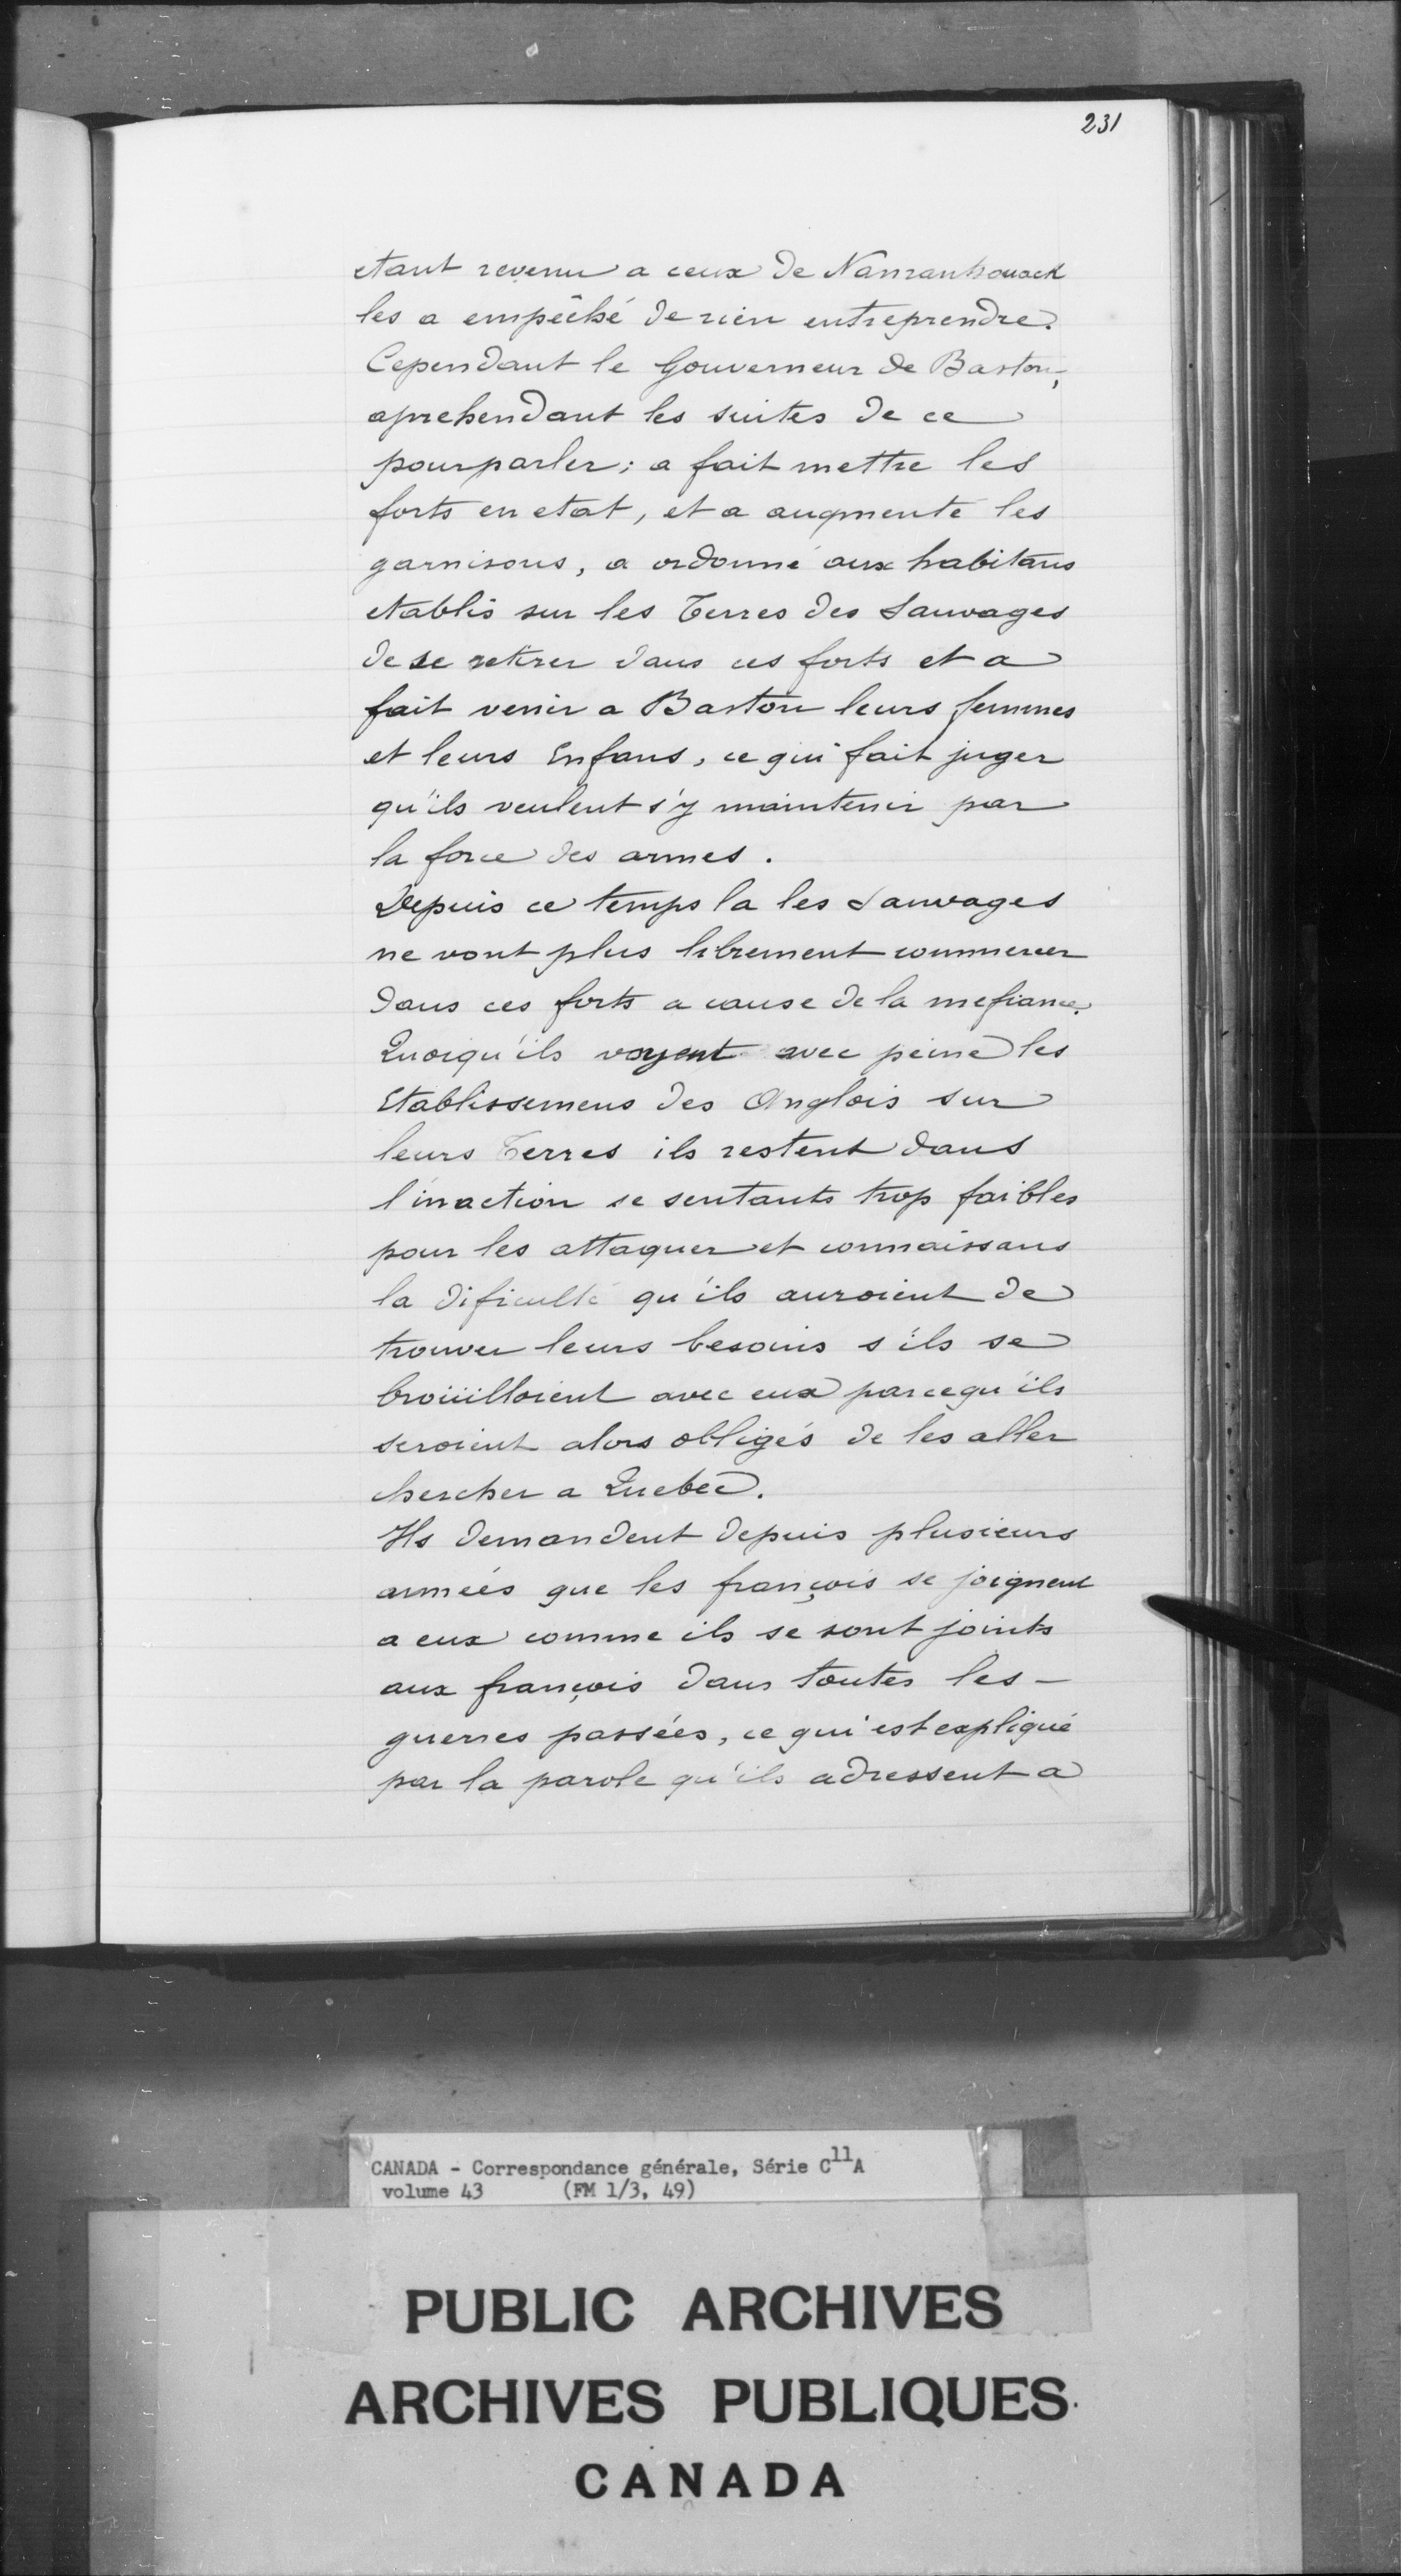 231
etant revenu a ceux de Nanrantsouack
les a empêché de rien entreprendre.
Cependant le Gouverneur de Baston,
aprehendant les suites de ce
pourparler; a fait mettre les
forts en etat, et a augmenté les
garnisons, a ordonné aux habitans
etablis sur les Terres des Sauvages
de se retirer dans ces forts et a
fait venir a Baston leurs femmes
et leurs Enfans, ce qui fait juger
qu'ils veulent s'y maintenir par
la force des armes.
Depuis ce temps la les Sauvages
ne vont plus librement commercer
dans ces forts a cause de la mefiance.
Quoiqu'ils voyent avec peine les
Etablissemens des Anglois sur
leurs Terres ils restent dans
l'inaction se sentants trop faibles
pour les attaquer et connaissans
la dificulté qu'ils auroient de
trouver leurs besoins s'ils se
broüilloient avec eux parcequ'ils
seroient alors obligés de les aller
chercher a Quebec.
Ils demandent depuis plusieurs
années que les françois se joignent
a eux comme ils se sont joints
aux françois dans toutes les -
guerres passées, ce qui est expliqué
par la parole qu'ils adressent a
CANADA - Correspondance générale, Série C11A
volume 43 (FM 1/3, 49)
PUBLIC ARCHIVES
ARCHIVES PUBLIQUES
CANADA